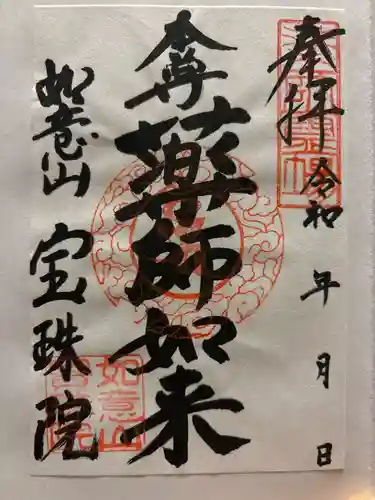 奉拝
令和 年 月 日
尊薬師如来
如意山
宝珠院
如意山